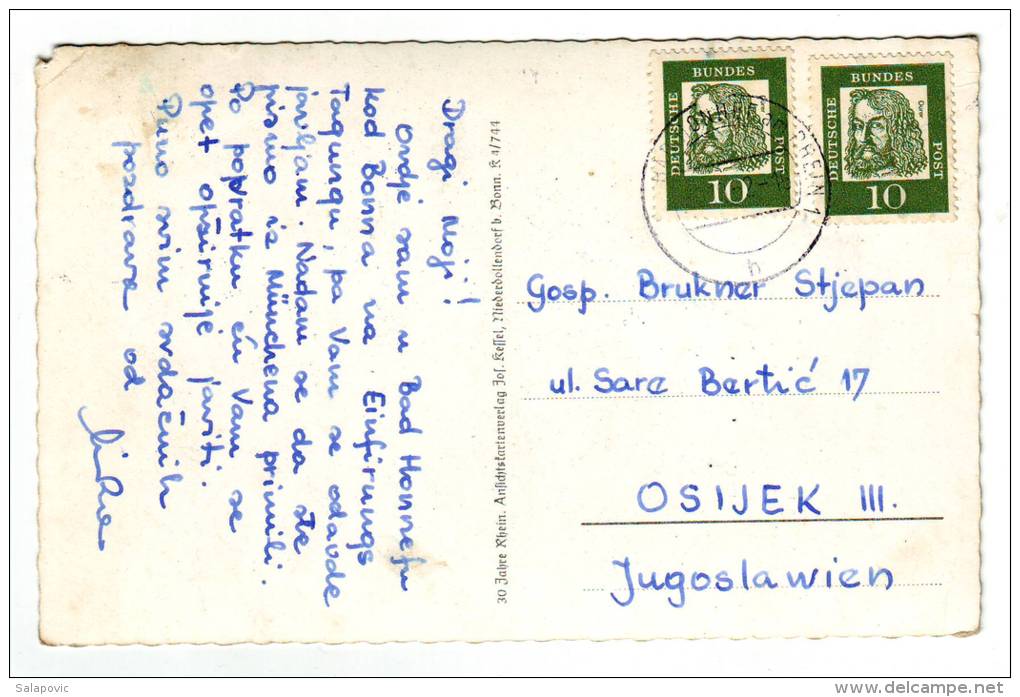 Dragi Moji!
Ovdje sam u Bad Honnefu
kod Bonna na Einfirungs
Tagungu, pa Vam se odavde
javljam. Nadam se da ste
pismo iz Münchena primili.
Po povratku ću Vam se
opet opširnije javiti.
Puno svim srdačnih
pozdrava od
30 Jahre Rhein. Ansichtskartenverlag Jos. Kessel, Niederdollendorf b. Bonn. K 4/744
DEUTSCHE
BUNDES
POST
Dürer
10
DEUTSCHE
BUNDES
POST
Dürer
10
RHEIN 1
h
Gosp. Brukner Stjepan
ul. Sare Bertić 17
OSIJEK III.
Jugoslawien
Salapovic
delcampe.net